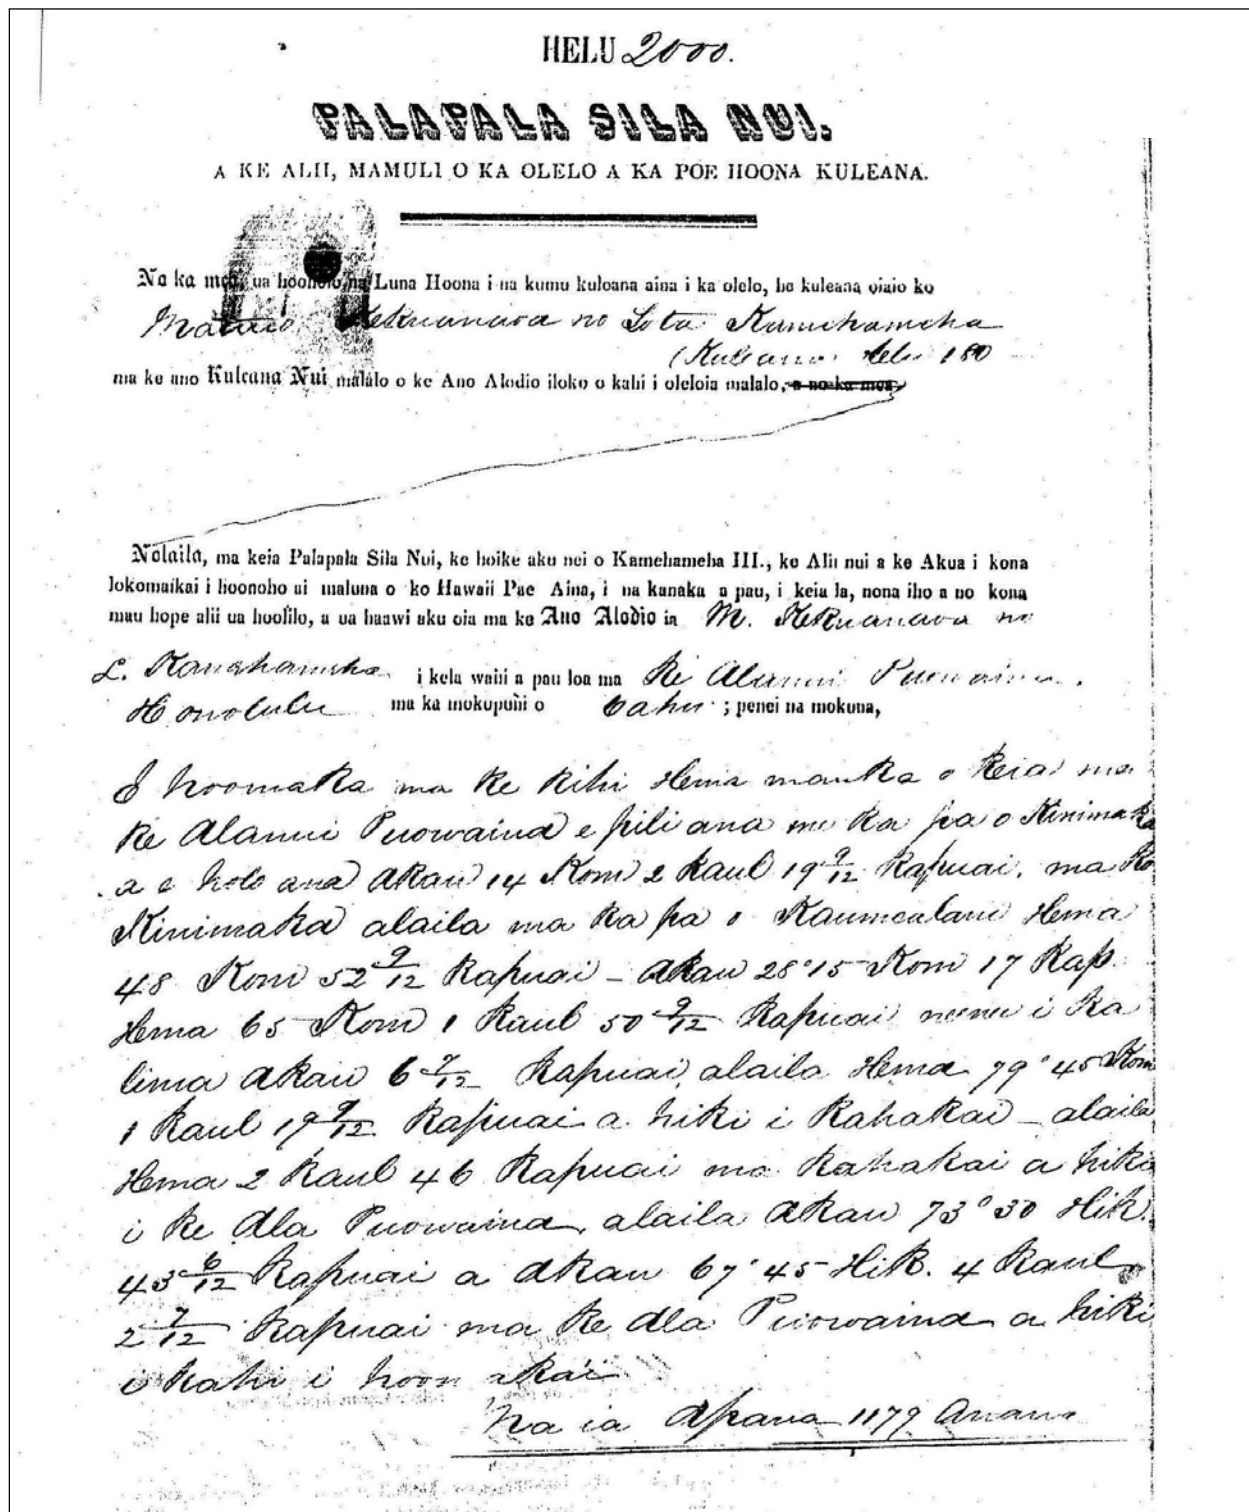 HELU 2000.
PALAPALA SILA NUI.
A KE ALII, MAMULI O KA OLELO A KA POE HOONA KULEANA.
No ka mea, ua hooholo na Luna Hoona i na kumu kuleana aina i ka olelo, he kuleana oiaio ko
Mataio Kekuanaoa no Lota Kamehameha
(Kuleana Helu 180
ma ke ano Kuleana Nui malalo o ke Ano Alodio iloko o kahi i oleloia malalo, a no ka mea,
Nolaila, ma keia Palapala Sila Nui, ke hoike aku nei o Kamehameha III., ke Alii nui a ke Akua i kona
lokomaikai i hoonoho ai maluna o ko Hawaii Pae Aina, i na kanaka a pau, i keia la, nona iho a no kona
mau hope alii ua hoolilo, a ua haawi aku oia ma ke Ano Alodio ia M. Kekuanaoa no
L. Kamehameha i kela wahi a pau loa ma Ke Alanui Puowaina.
Honolulu ma ka mokupuni o Oahu ; penei na mokuna,
E hoomaka ma ke kihi Hema mauka o keia ma
ke Alanui Puowaina e pili ana me ka pa o Kinimaka
a e holo ana Akau 14 Kom 2 kaul 19 9/12 kapuai. ma ko
Kinimaka alaila ma ka pa o Kaumealani Hema
48 Kom 52 9/12 kapuai - Akau 28°15 Kom 17 kap.
Hema 65 Kom 1 kaul 50 9/12 kapuai i ka
lima Akau 6 kapuai, alaila Hema 79°45 Kom
1 kaul 19 9/12 kapuai a hiki i kahakai - alaila
Hema 2 kaul 46 kapuai ma kahakai a hiki
i ke Ala Puowaina, alaila Akau 73°30 Hik.
43 6/12 kapuai a Akau 67°45 Hik. 4 kaul
2 7/12 kapuai ma ke Ala Puowaina a hiki
i kahi i hoomakai
Ma ia Apana 1179 Anana